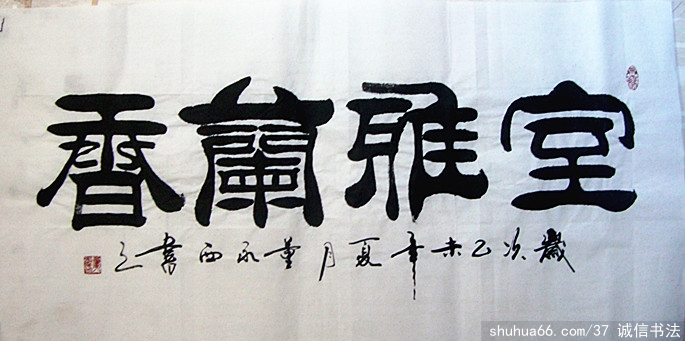 室雅蘭香
歲次乙未年夏月董永西書之
shuhua66.com/37 诚信书法